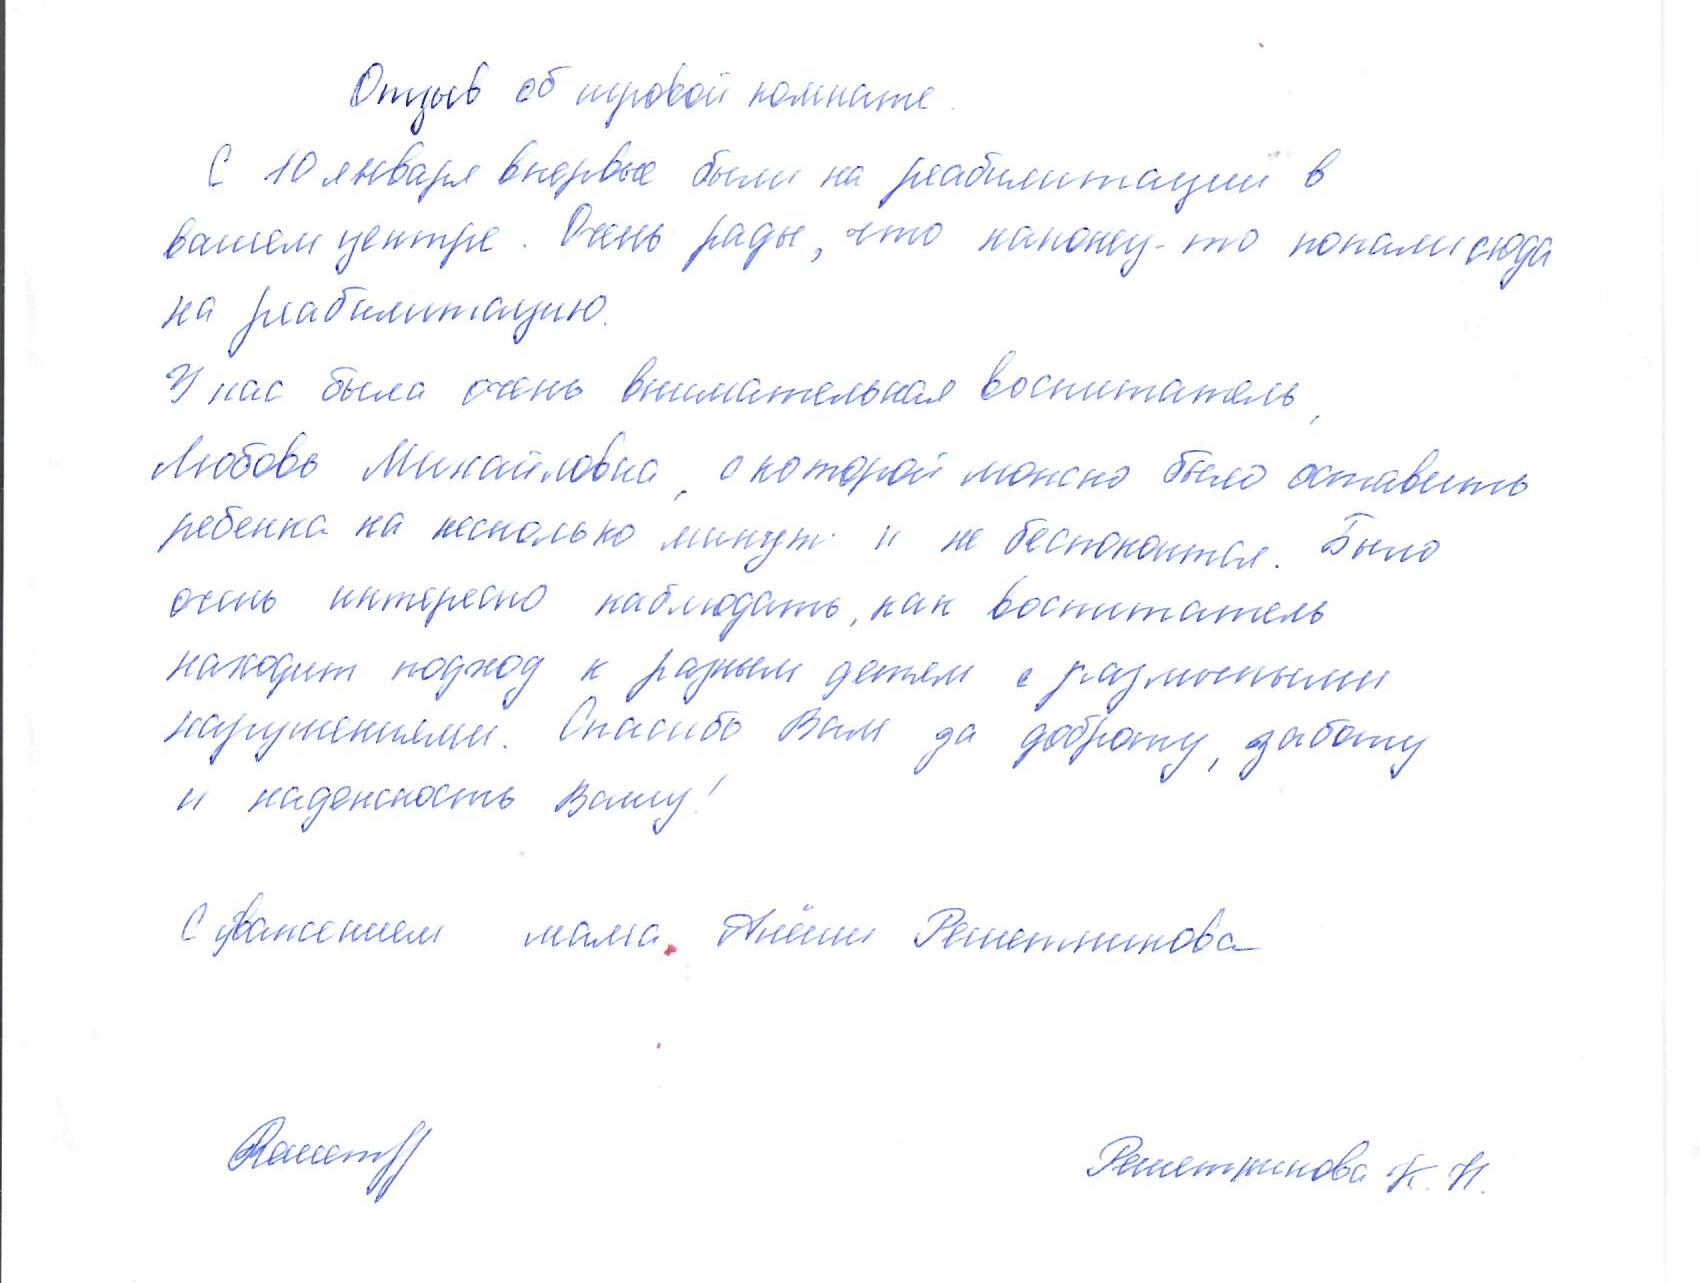 Отзыв об игровой комнате.
С 10 января впервые были на реабилитации в
вашем центре. Очень рады, что наконец-то попали сюда
на реабилитацию.
У нас была очень внимательная воспитатель,
Любовь Михайловна, с которой можно было оставить
ребенка на несколько минут и не беспокоится. Было
очень интересно наблюдать, как воспитатель
находит подход к разным детям с различными
нарушениями. Спасибо Вам за доброту, заботу
и надежность Вашу!
С уважением мама Алёши Решетникова
Решетникова К. Н.